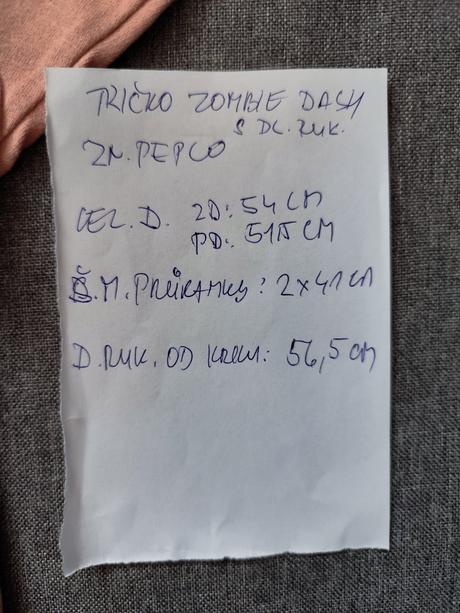 TRIČKO ZOMBIE DASH
S DL. RUK.
ZN. PEPCO
CEL. D. ZD: 54 CM
PD: 51,5 CM
Š. M. PRŮRAMKY: 2 x 41 CM
D. RUK. OD KRKU: 56,5 CM